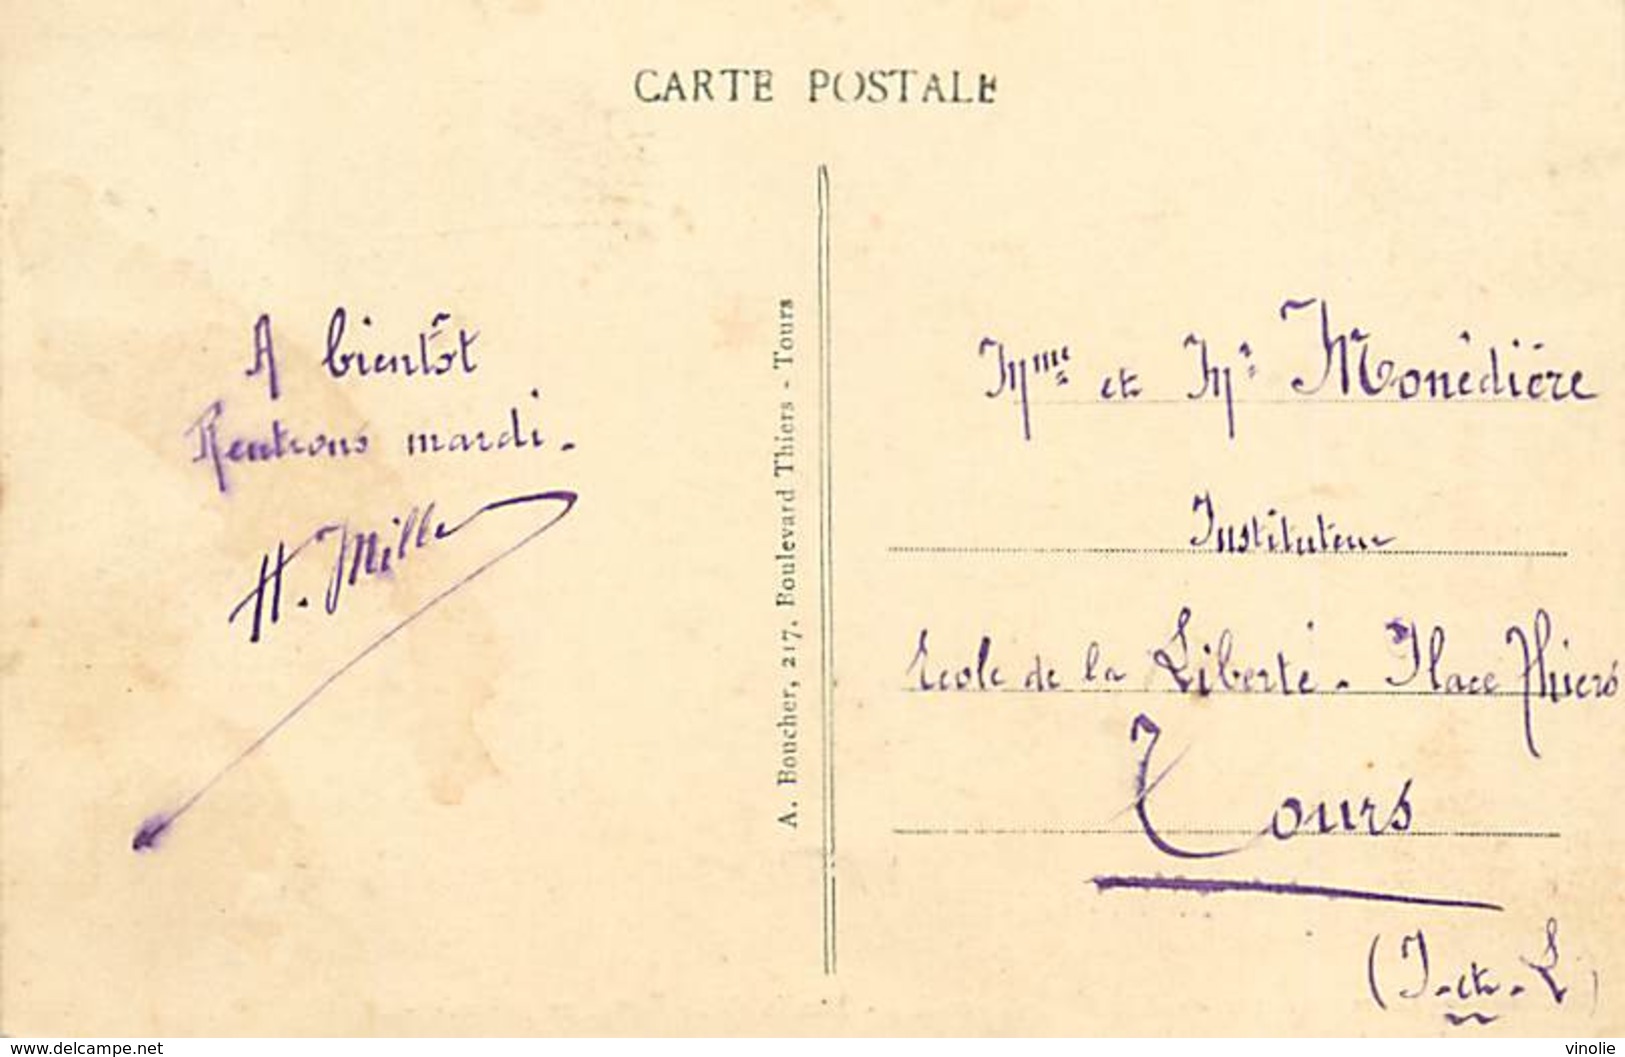 CARTE POSTALE
A bientôt
Rentrons mardi.
H. Mille
A. Boucher, 217, Boulevard Thiers - Tours
Mme et Mr Monédière
Instituteur
Ecole de la Liberté. Place Thiers
Tours
(I. et. L)
www.delcampe.net
vinolie